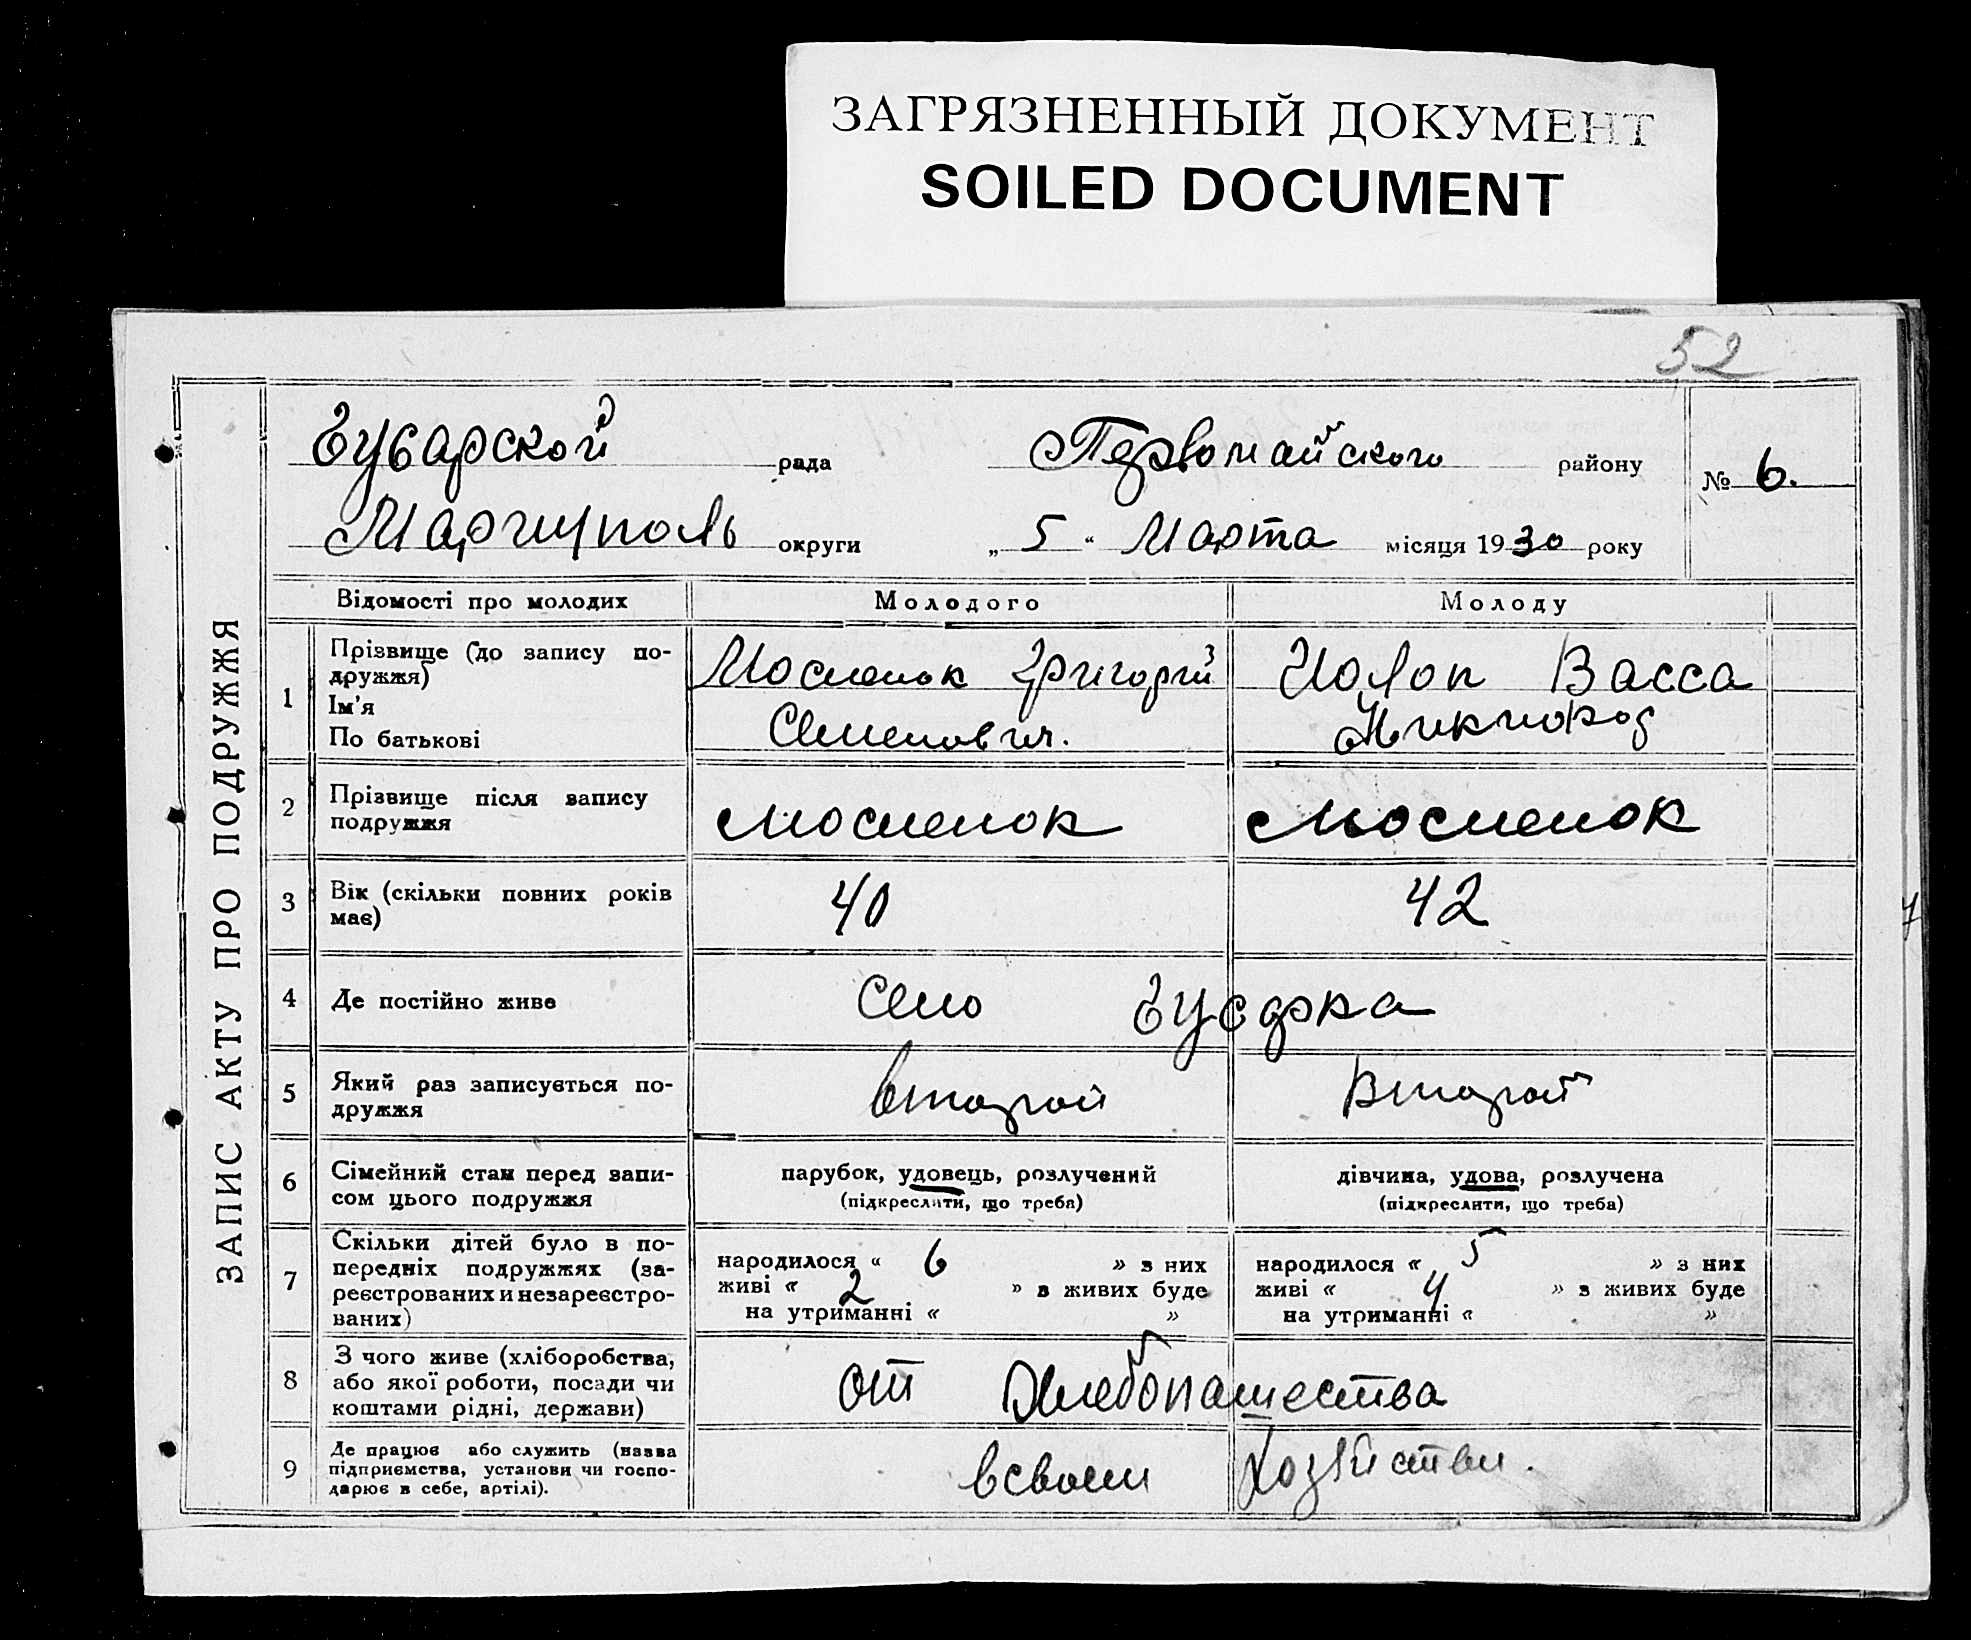 ЗАГРЯЗНЕННЫЙ ДОКУМЕНТ
SOILED DOCUMENT
52
ЗАПИС АКТУ ПРО ПОДРУЖЖЯ
Гусарской рада Первомайского району № 6.
Мариуполь округи „ 5 “ Марта місяця 1930 року
Відомості про молодих Молодого Молоду
1 Прізвище (до запису по-
дружжя)
Ім'я
По батькові
Мосменок Григорий
Семенович.
Чолоп Васса
Никифор
2 Прізвище після запису
подружжя
мосменок мосменок
3 Вік (скільки повних років
має)
40 42
4 Де постійно живе Село Гусарка
5 Який раз записується по-
дружжя
второй Второй
6 Сімейний стан перед запи-
сом цього подружжя
парубок, удовець, розлучений
(підкреслити, що треба)
дівчина, удова, розлучена
(підкреслити, що треба)
7 Скільки дітей було в по-
передніх подружжях (за-
реєстрованих и незареєстро-
ваних)
народилося « 6 » з них
живі « 2 » в живих буде
на утриманні « »
народилося « 5 » з них
живі « 4 » з живих буде
на утриманні « »
8 З чого живе (хліборобства,
або якої роботи, посади чи
коштами рідні, держави)
от Хлебопашества
9 Де працює або служить (назва
підприємства, установи чи госпо-
дарює в себе, артілі).
в своем хозяйстви.